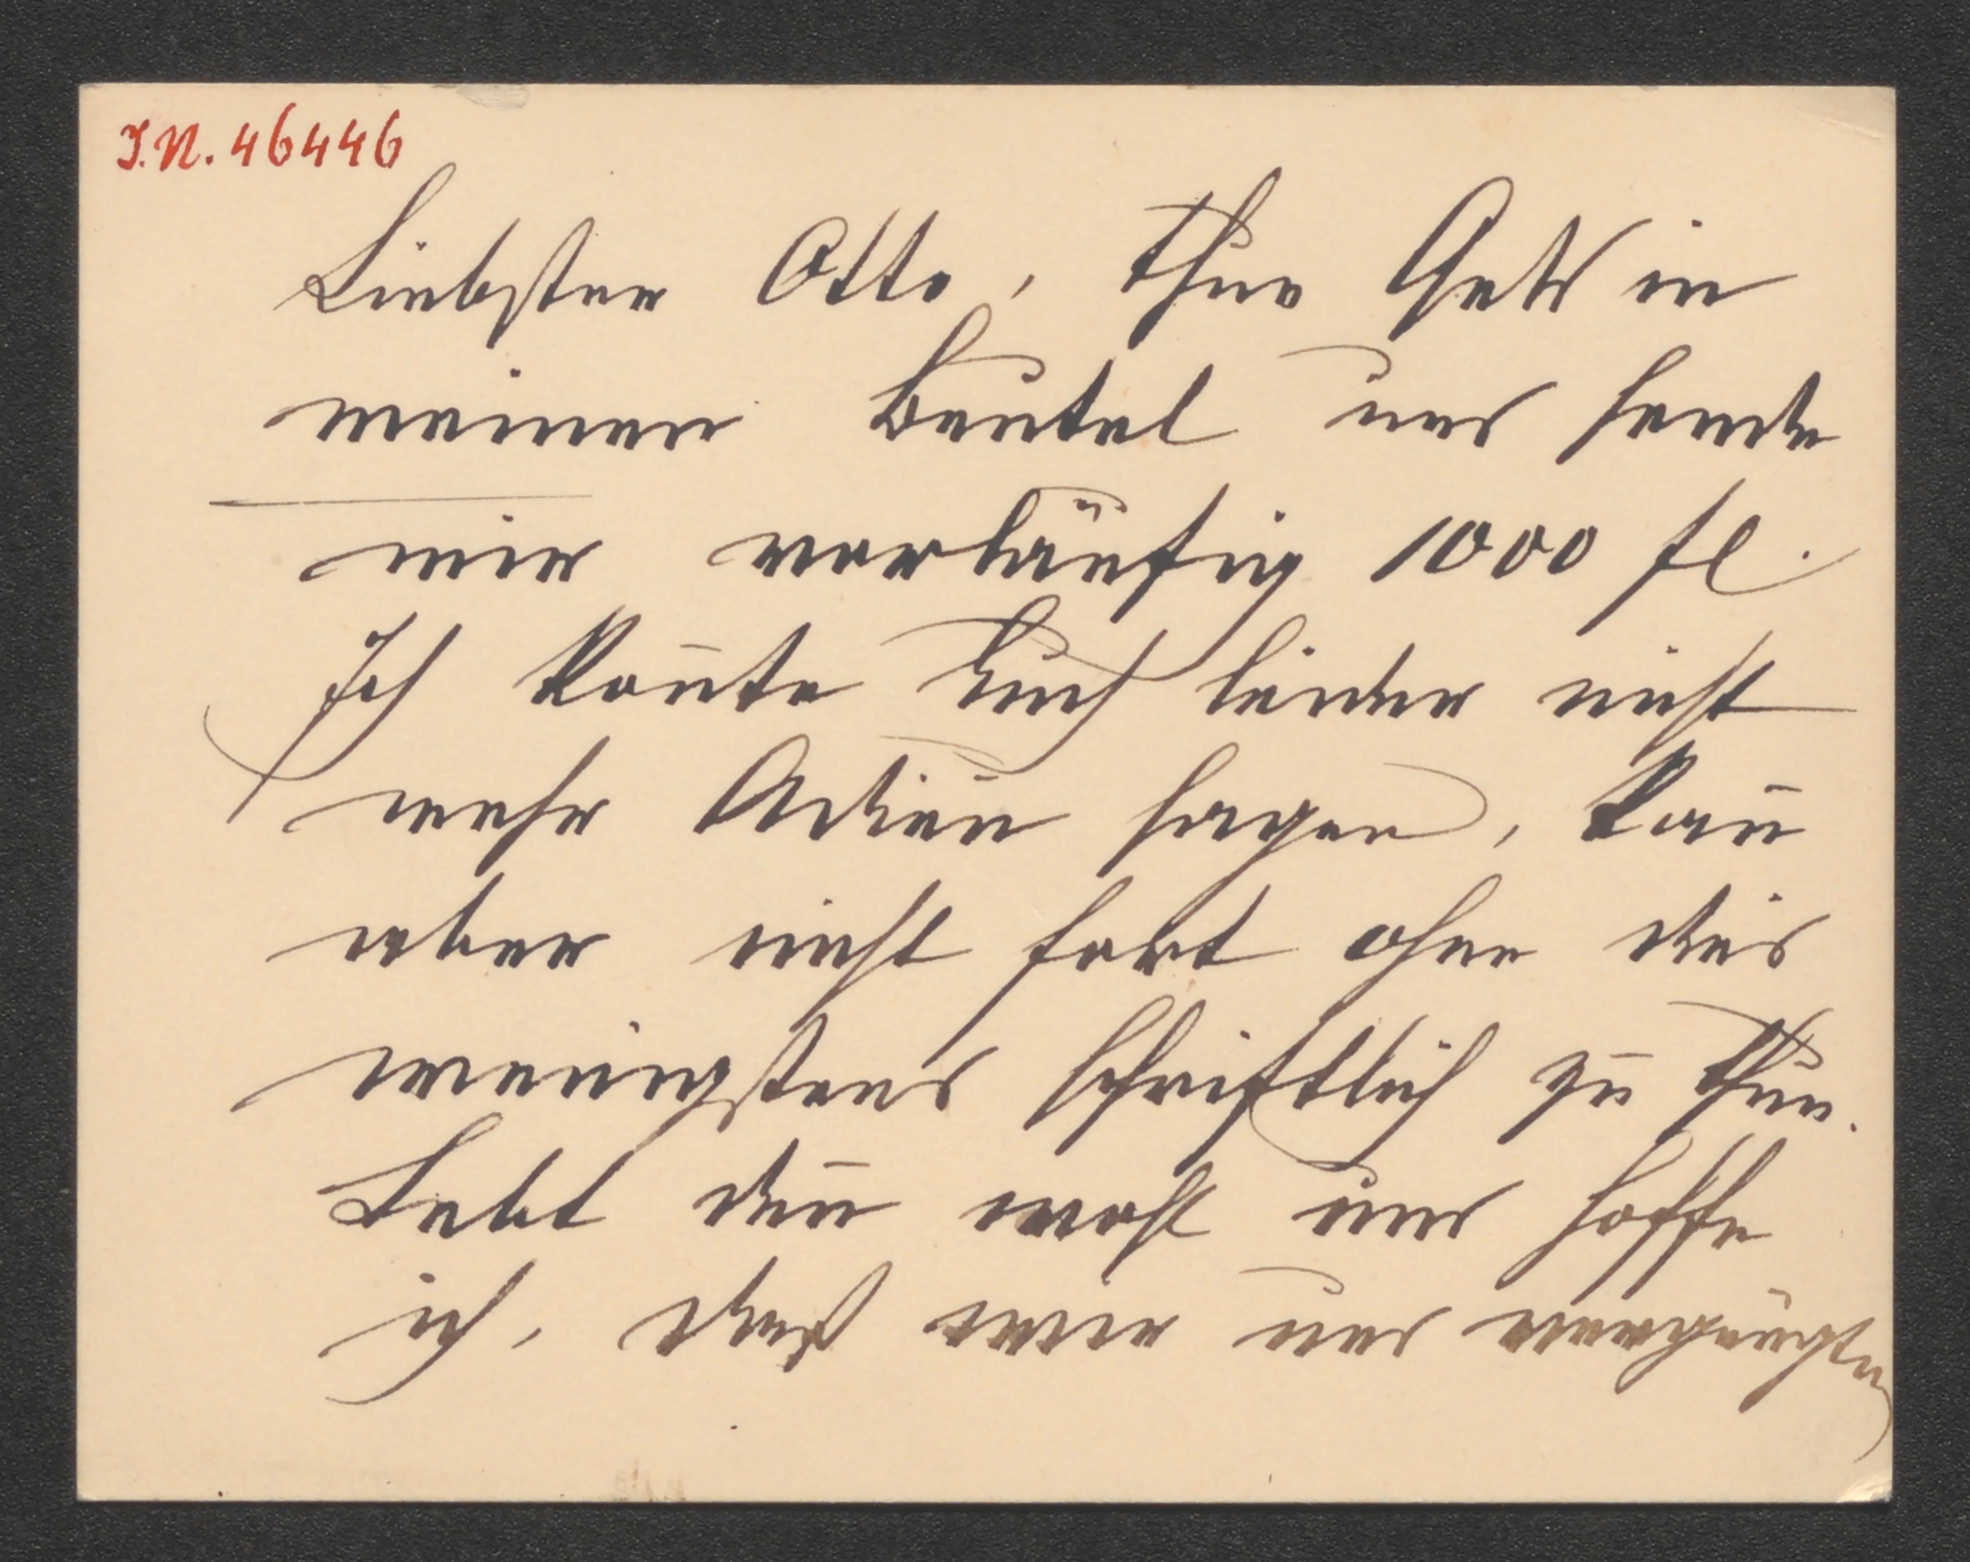 I.N. 46446
Liebster Otto, thue Geld in
meinen Beutel und sende
mir vorläufig 1000 fl.
Ich kon̅te Euch leider nicht
mehr Adieu sagen, kan̅
aber nicht fort ohne dies
wenigstens schriftlich zu thun.
Lebt den̅ wohl und hoffe
ich, daß wir uns vergnügten